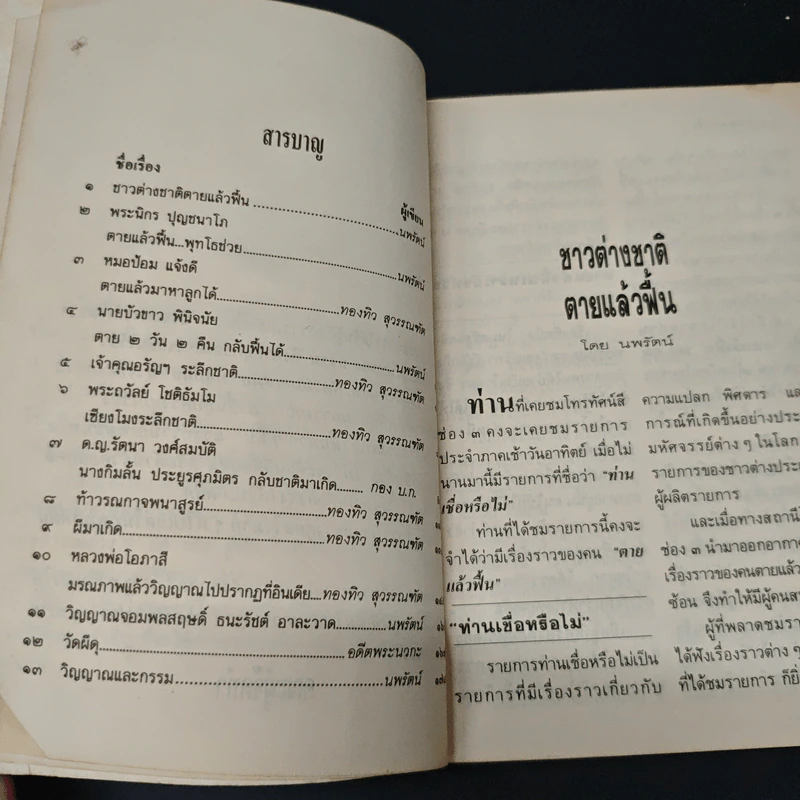 สารบาญ
ชื่อเรื่อง
ผู้เขียน
๑ ชาวต่างชาติตายแล้วฟื้น ........................ นพรัตน์
๒ พระนิกร ปุญชนาโภ
ตายแล้วฟื้น...พุทโธช่วย........................นพรัตน์
๓ หมอป้อม แจ้งดี
ตายแล้วมาหาลูกได้....................ทองทิว สุวรรณทัต
๔ นายบัวขาว พินิจนัย
ตาย ๒ วัน ๒ คืน กลับฟื้นได้....................นพรัตน์
๕ เจ้าคุณอรัญฯ ระลึกชาติ...............ทองทิว สุวรรณทัต
๖ พระถวัลย์ โชติธัมโม
เชียงโมงระลึกชาติ....................ทองทิว สุวรรณทัต
๗ ด.ญ.รัตนา วงศ์สมบัติ
นางกิมลั้น ประยูรศุภมิตร กลับชาติมาเกิด........ กอง บ.ก.
๘ ท้าวรณกาจพนาสูรย์...............ทองทิว สุวรรณทัต
๙ ผีมาเกิด....................ทองทิว สุวรรณทัต
๑๐ หลวงพ่อโอภาสี
มรณภาพแล้ววิญญาณไปปรากฏที่อินเดีย....ทองทิว สุวรรณทัต
๑๑ วิญญาณจอมพลสฤษดิ์ ธนะรัชต์ อาละวาด..........นพรัตน์
๑๒ วัดผีดุ........................................อดีตพระนวกะ
๑๓ วิญญาณและกรรม..............................นพรัตน์
ชาวต่างชาติ
ตายแล้วฟื้น
โดย นพรัตน์
ท่านที่เคยชมโทรทัศน์สี
ช่อง ๓ คงจะเคยชมรายการ
ประจำภาคเช้าวันอาทิตย์ เมื่อไม่
นานมานี้มีรายการที่ชื่อว่า "ท่าน
เชื่อหรือไม่"
ท่านที่ได้ชมรายการนี้คงจะ
จำได้ว่ามีเรื่องราวของคน "ตาย
แล้วฟื้น"
"ท่านเชื่อหรือไม่"
รายการท่านเชื่อหรือไม่เป็น
รายการที่มีเรื่องราวเกี่ยวกับ
ความแปลก พิศดาร
การณ์ที่เกิดขึ้นอย่าง
มหัศจรรย์ต่าง ๆ ในโลก
รายการของชาวต่าง
ผู้ผลิตรายการ
และเมื่อทางสถานี
ช่อง ๓ นำมาออกอากาศ
เรื่องราวของคนตายแล้ว
ซ้อน จึงทำให้มีผู้คน
ผู้ที่พลาดชม
ได้ฟังเรื่องราวต่าง ๆ
ที่ได้ชมรายการ ก็